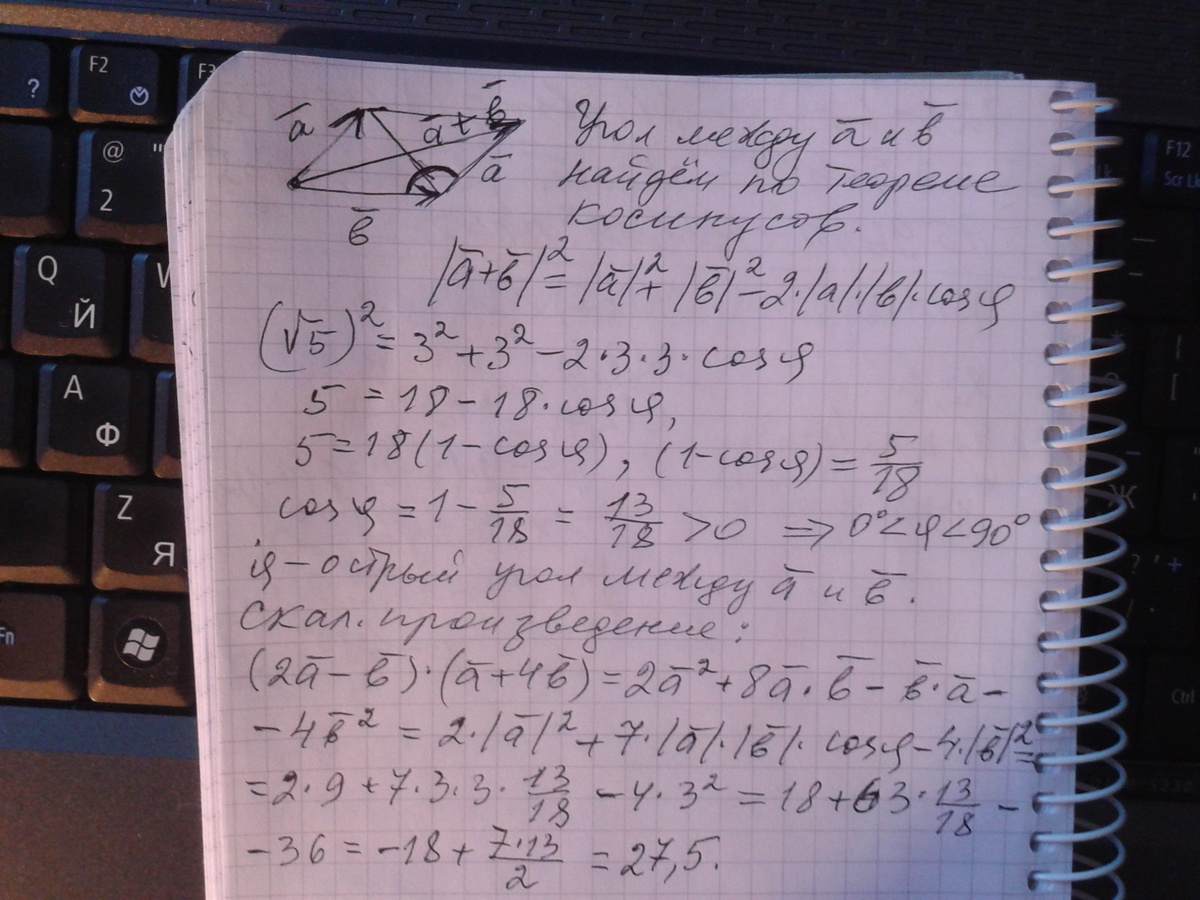 F2
F3
?
@ "
2
Q
Й
W
A
Ф
Z
Я
Fn
F12
Scr Lk
Ж
Ctrl
ā
ā + b̄
ā
b̄
Угол между ā и b̄
найдём по теореме
косинусов.
|ā+b̄|² = |ā|² + |b̄|² - 2·|a|·|b|·cos φ
(√5)² = 3² + 3² - 2·3·3·cos φ
5 = 18 - 18·cos φ,
5 = 18(1 - cos φ), (1 - cos φ) = 5/18
cos φ = 1 - 5/18 = 13/18 > 0 ⇒ 0° < φ < 90°
φ - острый угол между ā и b̄.
Скал. произведение:
(2ā - b̄)·(ā + 4b̄) = 2ā² + 8ā·b̄ - b̄·ā -
- 4b̄² = 2·|ā|² + 7·|ā|·|b̄|·cos φ - 4·|b̄|² =
= 2·9 + 7·3·3·13/18 - 4·3² = 18 + 63·13/18 -
- 36 = -18 + 7·13/2 = 27,5.